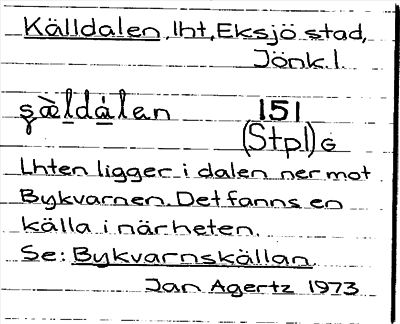 Källdalen, lht, Eksjö stad,
Jönk. l.
şὰl̲dá̲lan 151
(Stpl) G
Lhten ligger i dalen ner mot
Bykvarnen. Det fanns en
källa i närheten.
Se: Bykvarnskällan.
Jan Agertz 1973